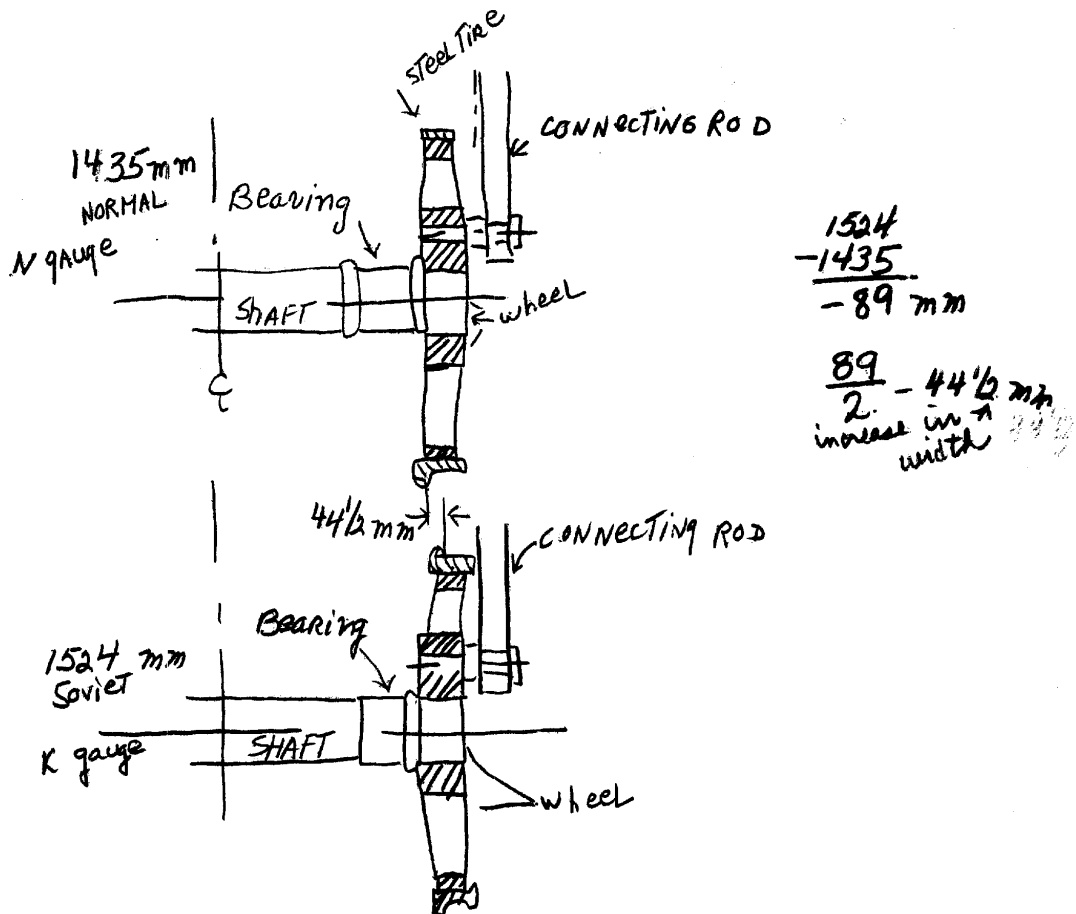 STEEL TIRE
CONNECTING ROD
1435 mm
NORMAL
N gauge
Bearing
SHAFT
wheel
1524
-1435
-89 mm
89
2
- 44 1/2 mm
increase in
width
44 1/2 mm
CONNECTING ROD
Bearing
1524 mm
Soviet
K gauge
SHAFT
wheel